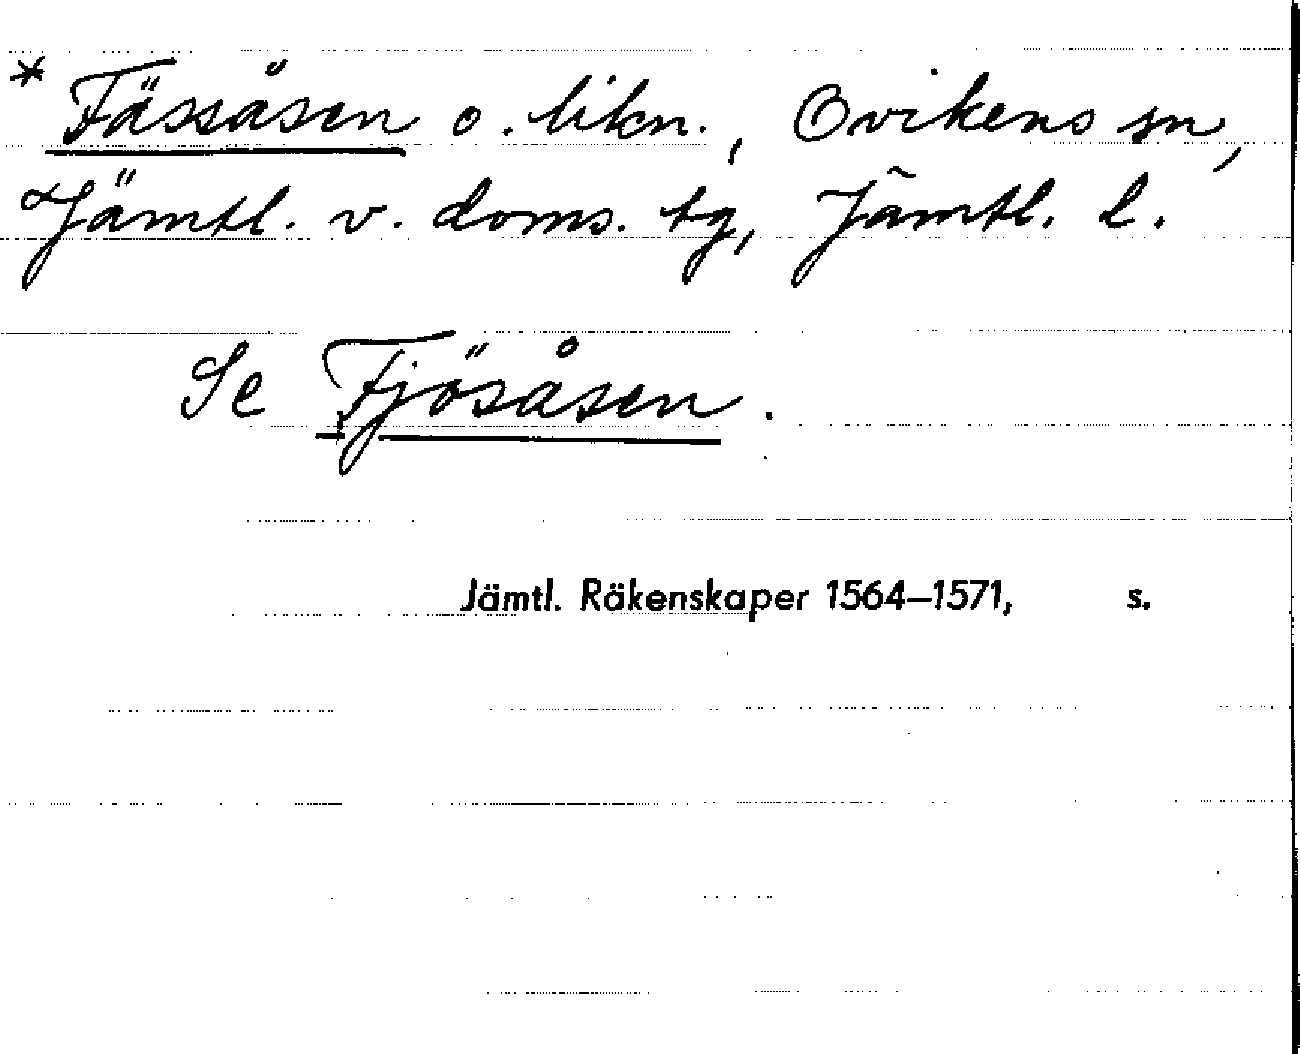 * Fässåsen o. likn., Ovikens sn,
Jämtl. v. doms. tg, Jämtl. l.
Se Fjösåsen.
Jämtl. Räkenskaper 1564–1571, s.